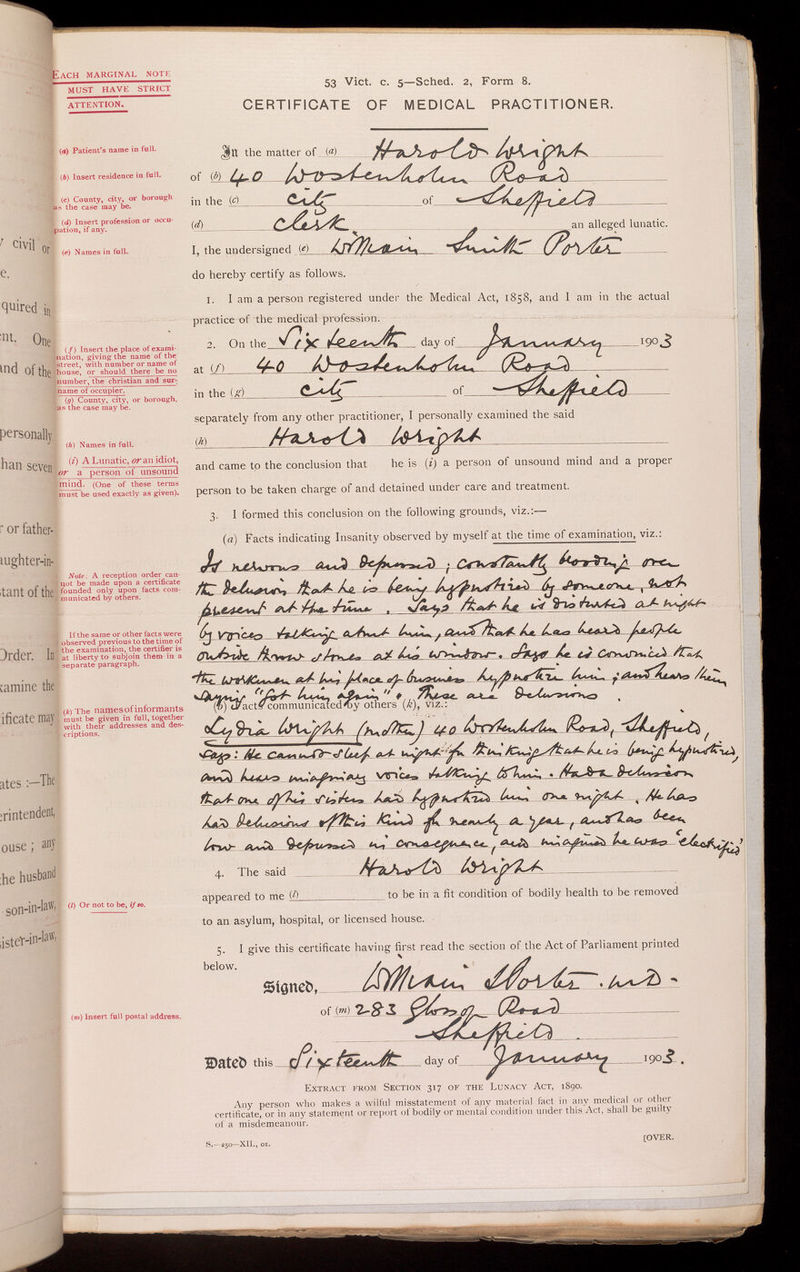 EACH MARGINAL NOTE
MUST HAVE STRICT
ATTENTION.
53 Vict. c. 5—Sched. 2, Form 8.
CERTIFICATE OF MEDICAL PRACTITIONER.
(a) Patient's name in full.
In the matter of (a) Harold Wright
(b) Insert residence in full.
of (b) 40 Wostenholm Road
(c) County, city, or borough
as the case may be.
in the (c) City of Sheffield
(d) Insert profession or occu-
pation, if any.
(d) Clerk an alleged lunatic.
(e) Names in full.
I, the undersigned (e) William Smith Porter
do hereby certify as follows.
1. I am a person registered under the Medical Act, 1858, and I am in the actual
practice of the medical profession.
2. On the Sixteenth day of January 1903
(f) Insert the place of exami-
nation, giving the name of the
street, with number or name of
house, or should there be no
number, the christian and sur-
name of occupier.
at (f) 40 Wostenholm Road
(g) County, city, or borough,
as the case may be.
in the (g) City of Sheffield
separately from any other practitioner, I personally examined the said
(h) Names in full.
(h) Harold Wright
(i) A Lunatic, or an idiot,
or a person of unsound
mind. (One of these terms
must be used exactly as given).
and came to the conclusion that he is (i) a person of unsound mind and a proper
person to be taken charge of and detained under care and treatment.
3. I formed this conclusion on the following grounds, viz.:—
(a) Facts indicating Insanity observed by myself at the time of examination, viz.:
Note. A reception order can-
not be made upon a certificate
founded only upon facts com-
municated by others.
Is nervous and depressed; constantly brooding over
the delusion that he is being hypnotised by someone, not
present at the time. Says that he is disturbed at night
by voices talking about him, and that he has heard people
If the same or other facts were
observed previous to the time of
the examination, the certifier is
at liberty to subjoin them in a
separate paragraph.
outside throw stones at his window. Says he is convinced that
the workmen at his place of business hypnotise him; and hears them
saying "got him again". These are delusions.
(b) Facts communicated by others (k), viz.:
(k) The names of informants
must be given in full, together
with their addresses and des-
criptions.
Lydia Wright (mother) 40 Wostenholm Road, Sheffield,
says: He cannot sleep at night for thinking that he is being hypnotised,
and hears imaginary voices talking to him. Had a delusion
that one of his sisters had hypnotised him one night. He has
had delusions of this kind for nearly a year, and has been
low and depressed in consequence, and imagined he was "electrified"
4. The said Harold Wright
(l) Or not to be, if so.
appeared to me (l) to be in a fit condition of bodily health to be removed
to an asylum, hospital, or licensed house.
5. I give this certificate having first read the section of the Act of Parliament printed
below.
Signed, William S Porter. M.D.
(m) Insert full postal address.
of (m) 283 Glossop Road
Sheffield.
Dated this Sixteenth day of January 1903.
EXTRACT FROM SECTION 317 OF THE LUNACY ACT, 1890.
Any person who makes a wilful misstatement of any material fact in any medical or other
certificate, or in any statement or report of bodily or mental condition under this Act, shall be guilty
of a misdemeanour.
S.—250—XII., 02.
[OVER.
civil or
e.
quired in
nt. One
nd of the
personally
han seven
or father-
aughter-in-
tant of the
Order. In
camine the
ificate may
ates :—The
rintendent,
ouse ; any
he husband
son-in-law,
ister-in-law,